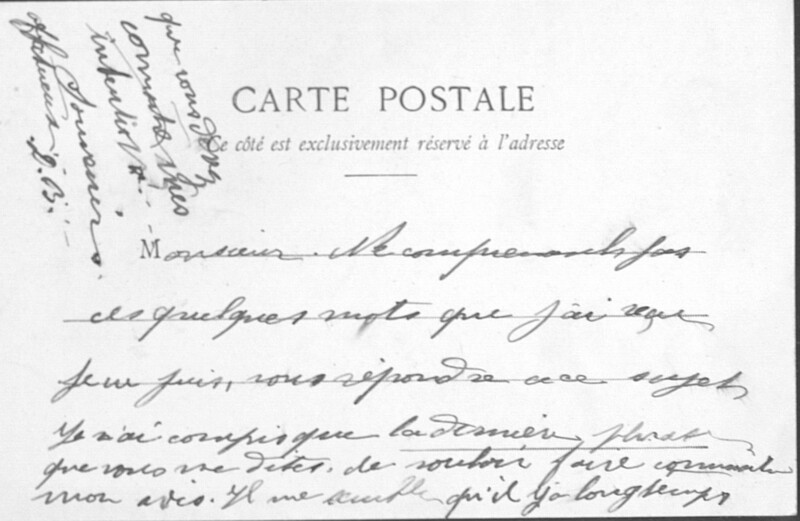 CARTE POSTALE
Ce côté est exclusivement réservé à l'adresse
Monsieur. Ne comprenant pas
ces quelques mots que j'ai reçu
je ne puis, vous répondre a ce sujet
Je n'ai compris que la dernière phrase
que vous me dites. de vouloir faire connaître
mon avis. Il me semble qu'il y a longtemps
que vous devez
connaître mes
intentions.
Souvenirs
affectueux